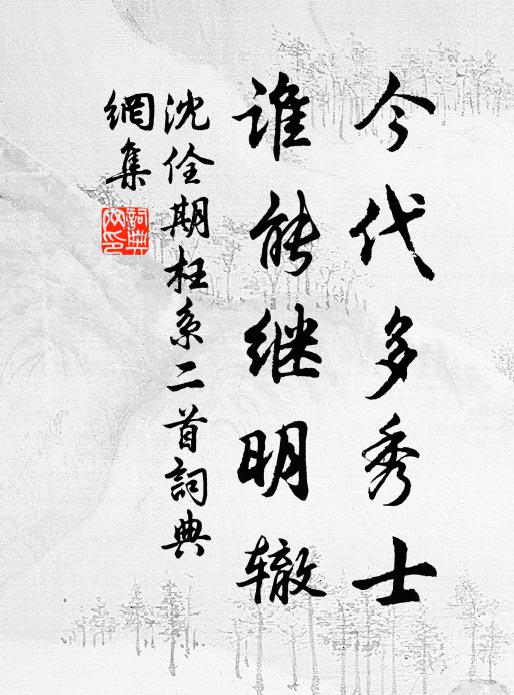 今代多秀士
谁能继明辙
沈佺期枉系二首詞典
網集
詞典網印